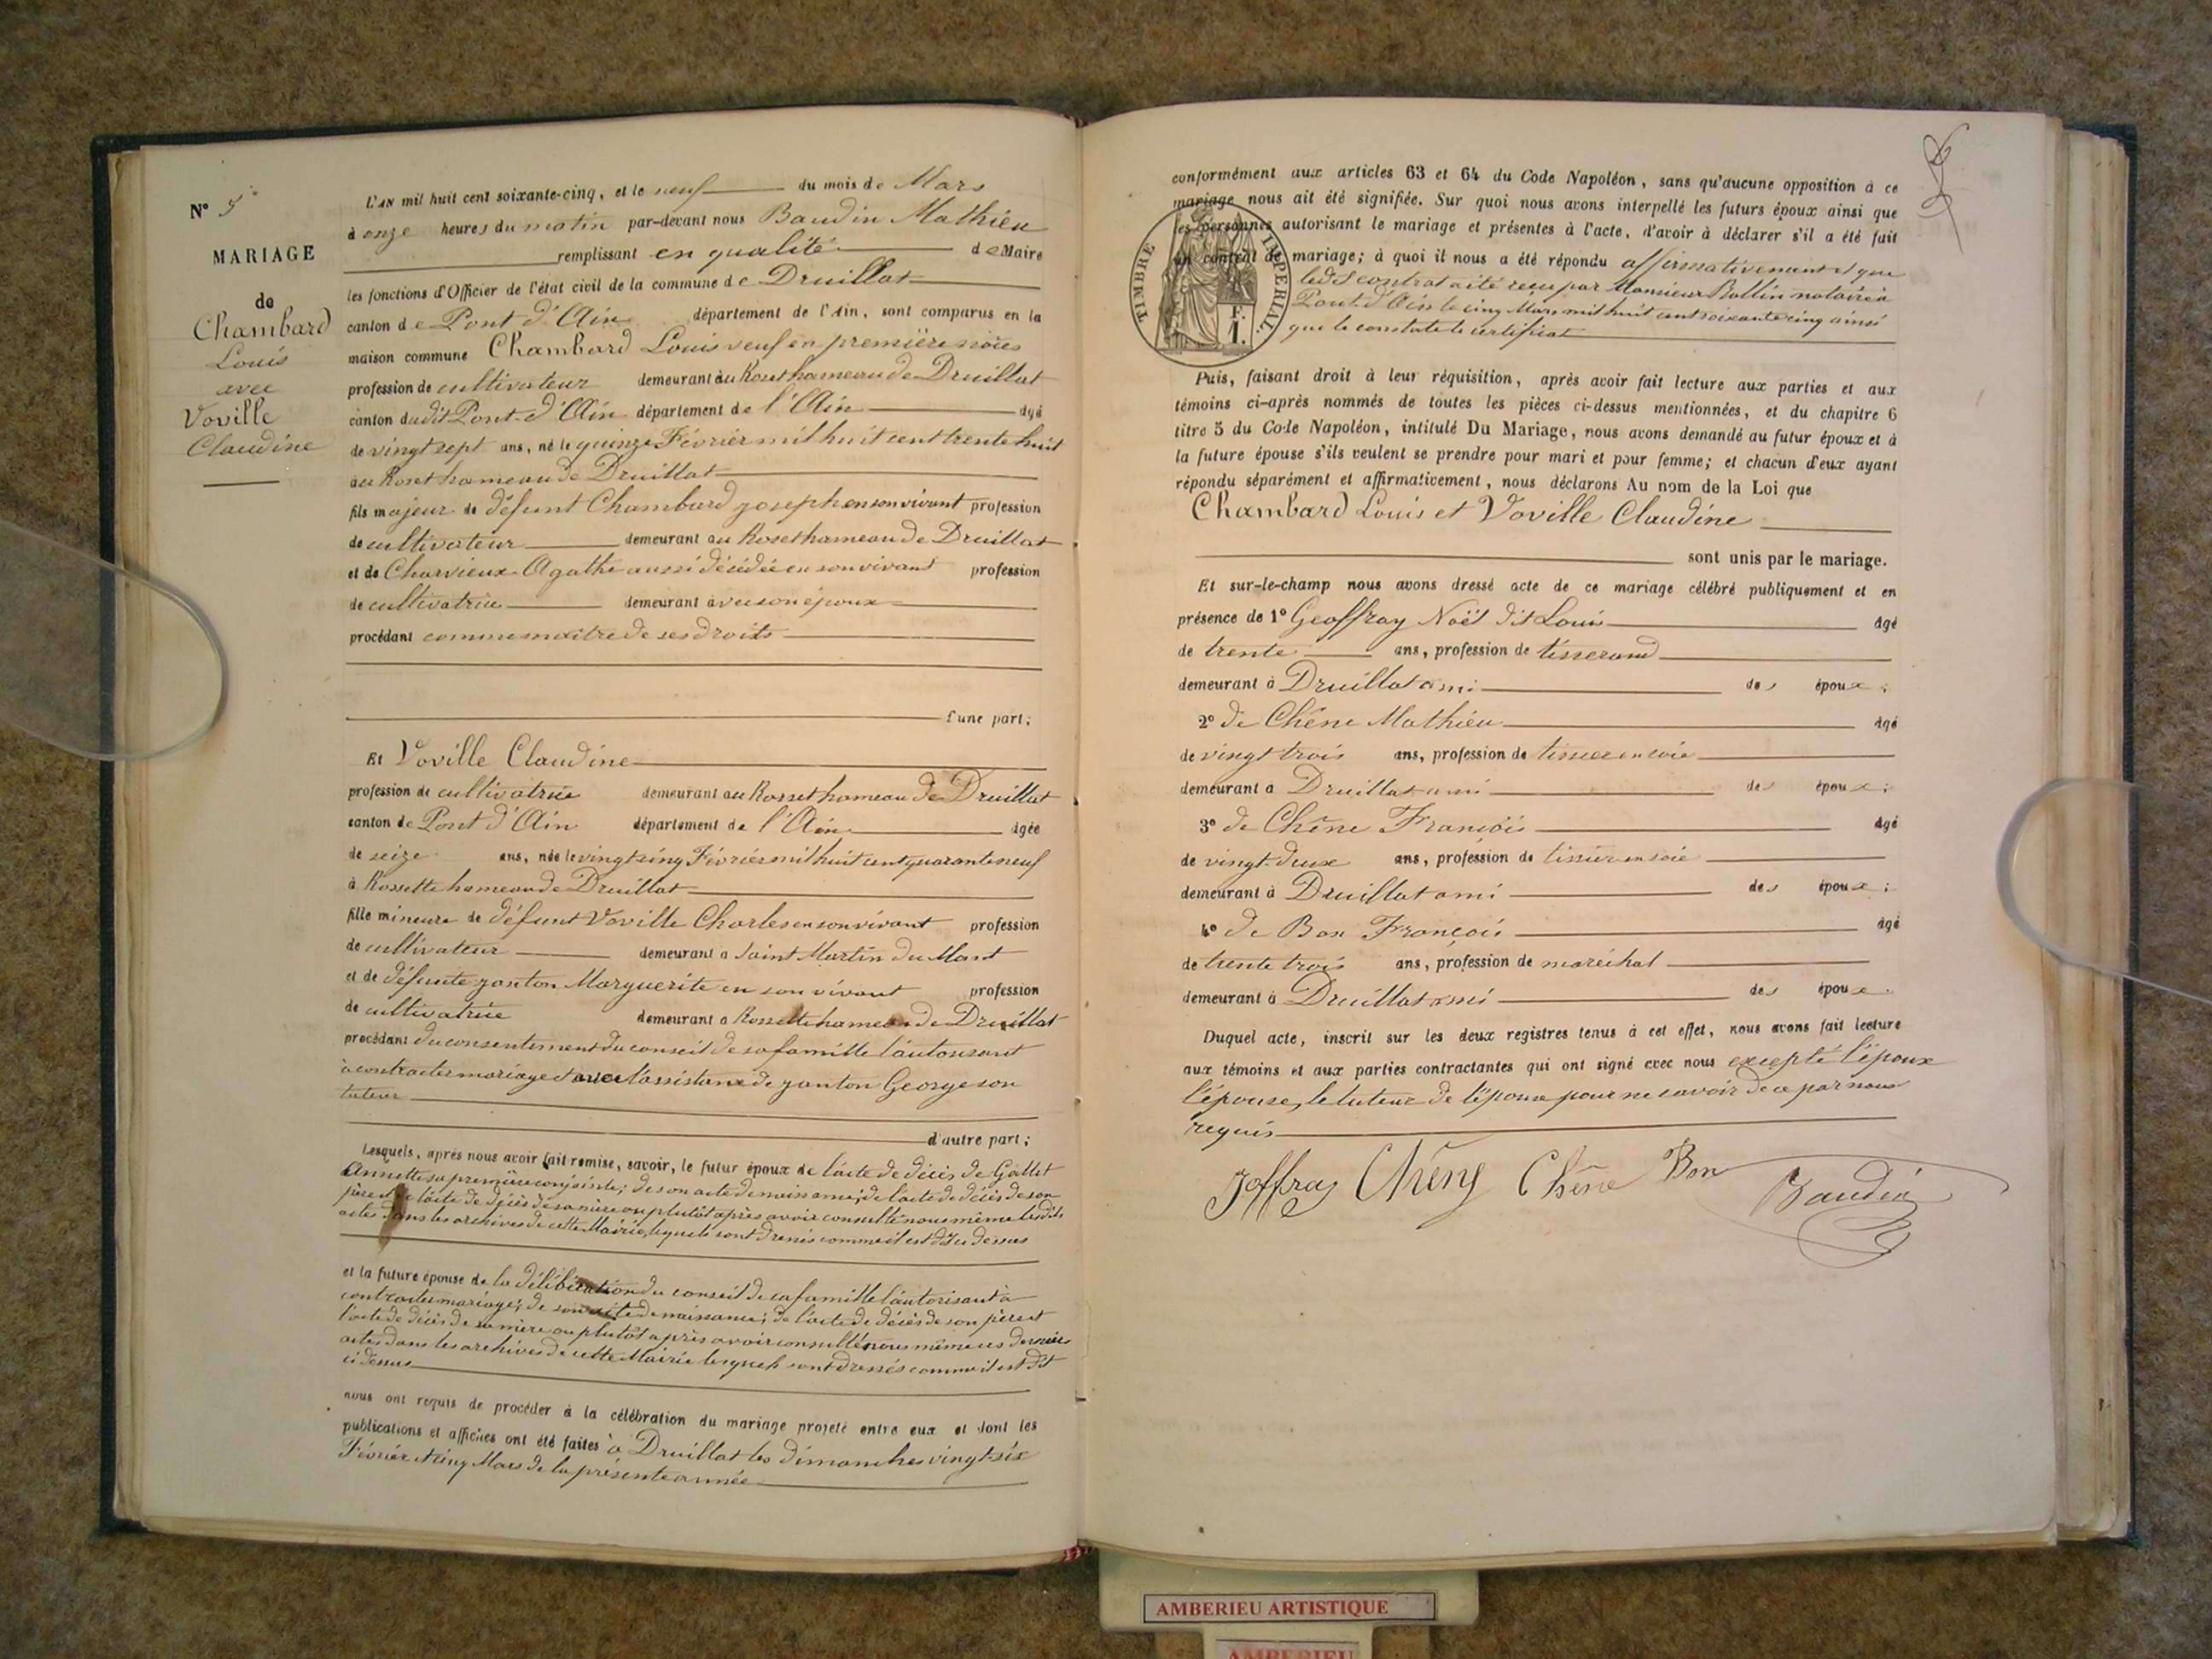 N° 5
MARIAGE
de
Chambard
Louis
avec
Voville
Claudine
L'AN mil huit cent soixante-cinq, et le neuf du mois de Mars
à onze heures du matin par-devant nous Baudin Mathieu
remplissant en qualité de Maire
les fonctions d'Officier de l'état civil de la commune de Druillat
canton de Pont d'Ain département de l'Ain, sont comparus en la
maison commune Chambard Louis veuf en première noces
profession de cultivateur demeurant au Roset hameau de Druillat
canton dudit Pont-d'Ain département de l'Ain âgé
de vingt sept ans, né le quinze Février mil huit cent trente huit
au Roset hameau de Druillat
fils majeur de défunt Chambard Joseph en son vivant profession
de cultivateur demeurant au Roset hameau de Druillat
et de Charvieux Agathe aussi décédée en son vivant profession
de cultivatrice demeurant avec son époux
procédant comme maître de ses droits
d'une part;
Et Voville Claudine
profession de cultivatrice demeurant au Rosset hameau de Druillat
canton de Pont d'Ain département de l'Ain âgée
de seize ans, née le vingt cinq Février mil huit cent quarante neuf
à Rossette hameau de Druillat
fille mineure de défunt Voville Charles en son vivant profession
de cultivateur demeurant a Saint Martin du Mont
et de défunte Janton Marguerite en son vivant profession
de cultivatrice demeurant a Rossette hameau de Druillat
procédant du consentement du conseil de sa famille l'autorisant
à contracter mariage et avec l'assistance de Janton George son
tuteur
d'autre part;
Lesquels, après nous avoir fait remise, savoir, le futur époux de l'acte de décès de Gallet
Annette sa première conjointe; de son acte de naissance; de l'acte de décès de son
père et de l'acte de décès de sa mère ou plutôt après avoir consulté nous même lesdits
actes dans les archives de cette Mairie, lesquels sont dressés comme il est dit ci dessus
et la future épouse de la délibération du conseil de sa famille l'autorisant à
contracter mariage; de son acte de naissance; de l'acte de décès de son père et
l'acte de décès de sa mère ou plutôt après avoir consulté nous même ces derniers
actes dans les archives de cette Mairie lesquels sont dressés comme il est dit
ci dessus
nous ont requis de procéder à la célébration du mariage projeté entre eux et dont les
publications et affiches ont été faites à Druillat les dimanches vingt-six
Février et cinq Mars de la présente année
conformément aux articles 63 et 64 du Code Napoléon, sans qu'aucune opposition à ce
mariage nous ait été signifiée. Sur quoi nous avons interpellé les futurs époux ainsi que
les personnes autorisant le mariage et présentes à l'acte, d'avoir à déclarer s'il a été fait
un contrat de mariage; à quoi il nous a été répondu affirmativement et que
ledit contrat a été reçu par Monsieur Bollin notaire à
Pont d'Ain le cinq Mars mil huit cent soixante cinq ainsi
que le constate le certificat
TIMBRE IMPÉRIAL.
1 F.
Puis, faisant droit à leur réquisition, après avoir fait lecture aux parties et aux
témoins ci-après nommés de toutes les pièces ci-dessus mentionnées, et du chapitre 6
titre 5 du Code Napoléon, intitulé Du Mariage, nous avons demandé au futur époux et à
la future épouse s'ils veulent se prendre pour mari et pour femme; et chacun d'eux ayant
répondu séparément et affirmativement, nous déclarons Au nom de la Loi que
Chambard Louis et Voville Claudine
sont unis par le mariage.
Et sur-le-champ nous avons dressé acte de ce mariage célébré publiquement et en
présence de 1° Geoffray Noël dit Louis âgé
de trente ans, profession de tisserand
demeurant à Druillat ami des époux;
2° de Chêne Mathieu âgé
de vingt trois ans, profession de tissier en soie
demeurant à Druillat ami des époux;
3° de Chêne François âgé
de vingt-deux ans, profession de tissier en soie
demeurant à Druillat ami des époux;
4° de Bon François âgé
de trente trois ans, profession de maréchal
demeurant à Druillat ami des époux.
Duquel acte, inscrit sur les deux registres tenus à cet effet, nous avons fait lecture
aux témoins et aux parties contractantes qui ont signé avec nous excepté l'époux
l'épouse, le tuteur de l'épouse pour ne savoir de ce par nous
requis
Joffray Chêne Chêne Bon Baudin
AMBERIEU ARTISTIQUE
AMBERIEU